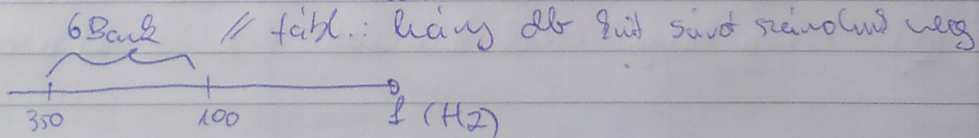 6 Bark // tábl.: hány db sávot számolunk meg
350 100 f (HZ)